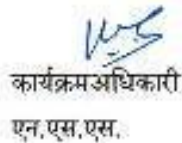 कार्यक्रम अधिकारी
एन.एस.एस.